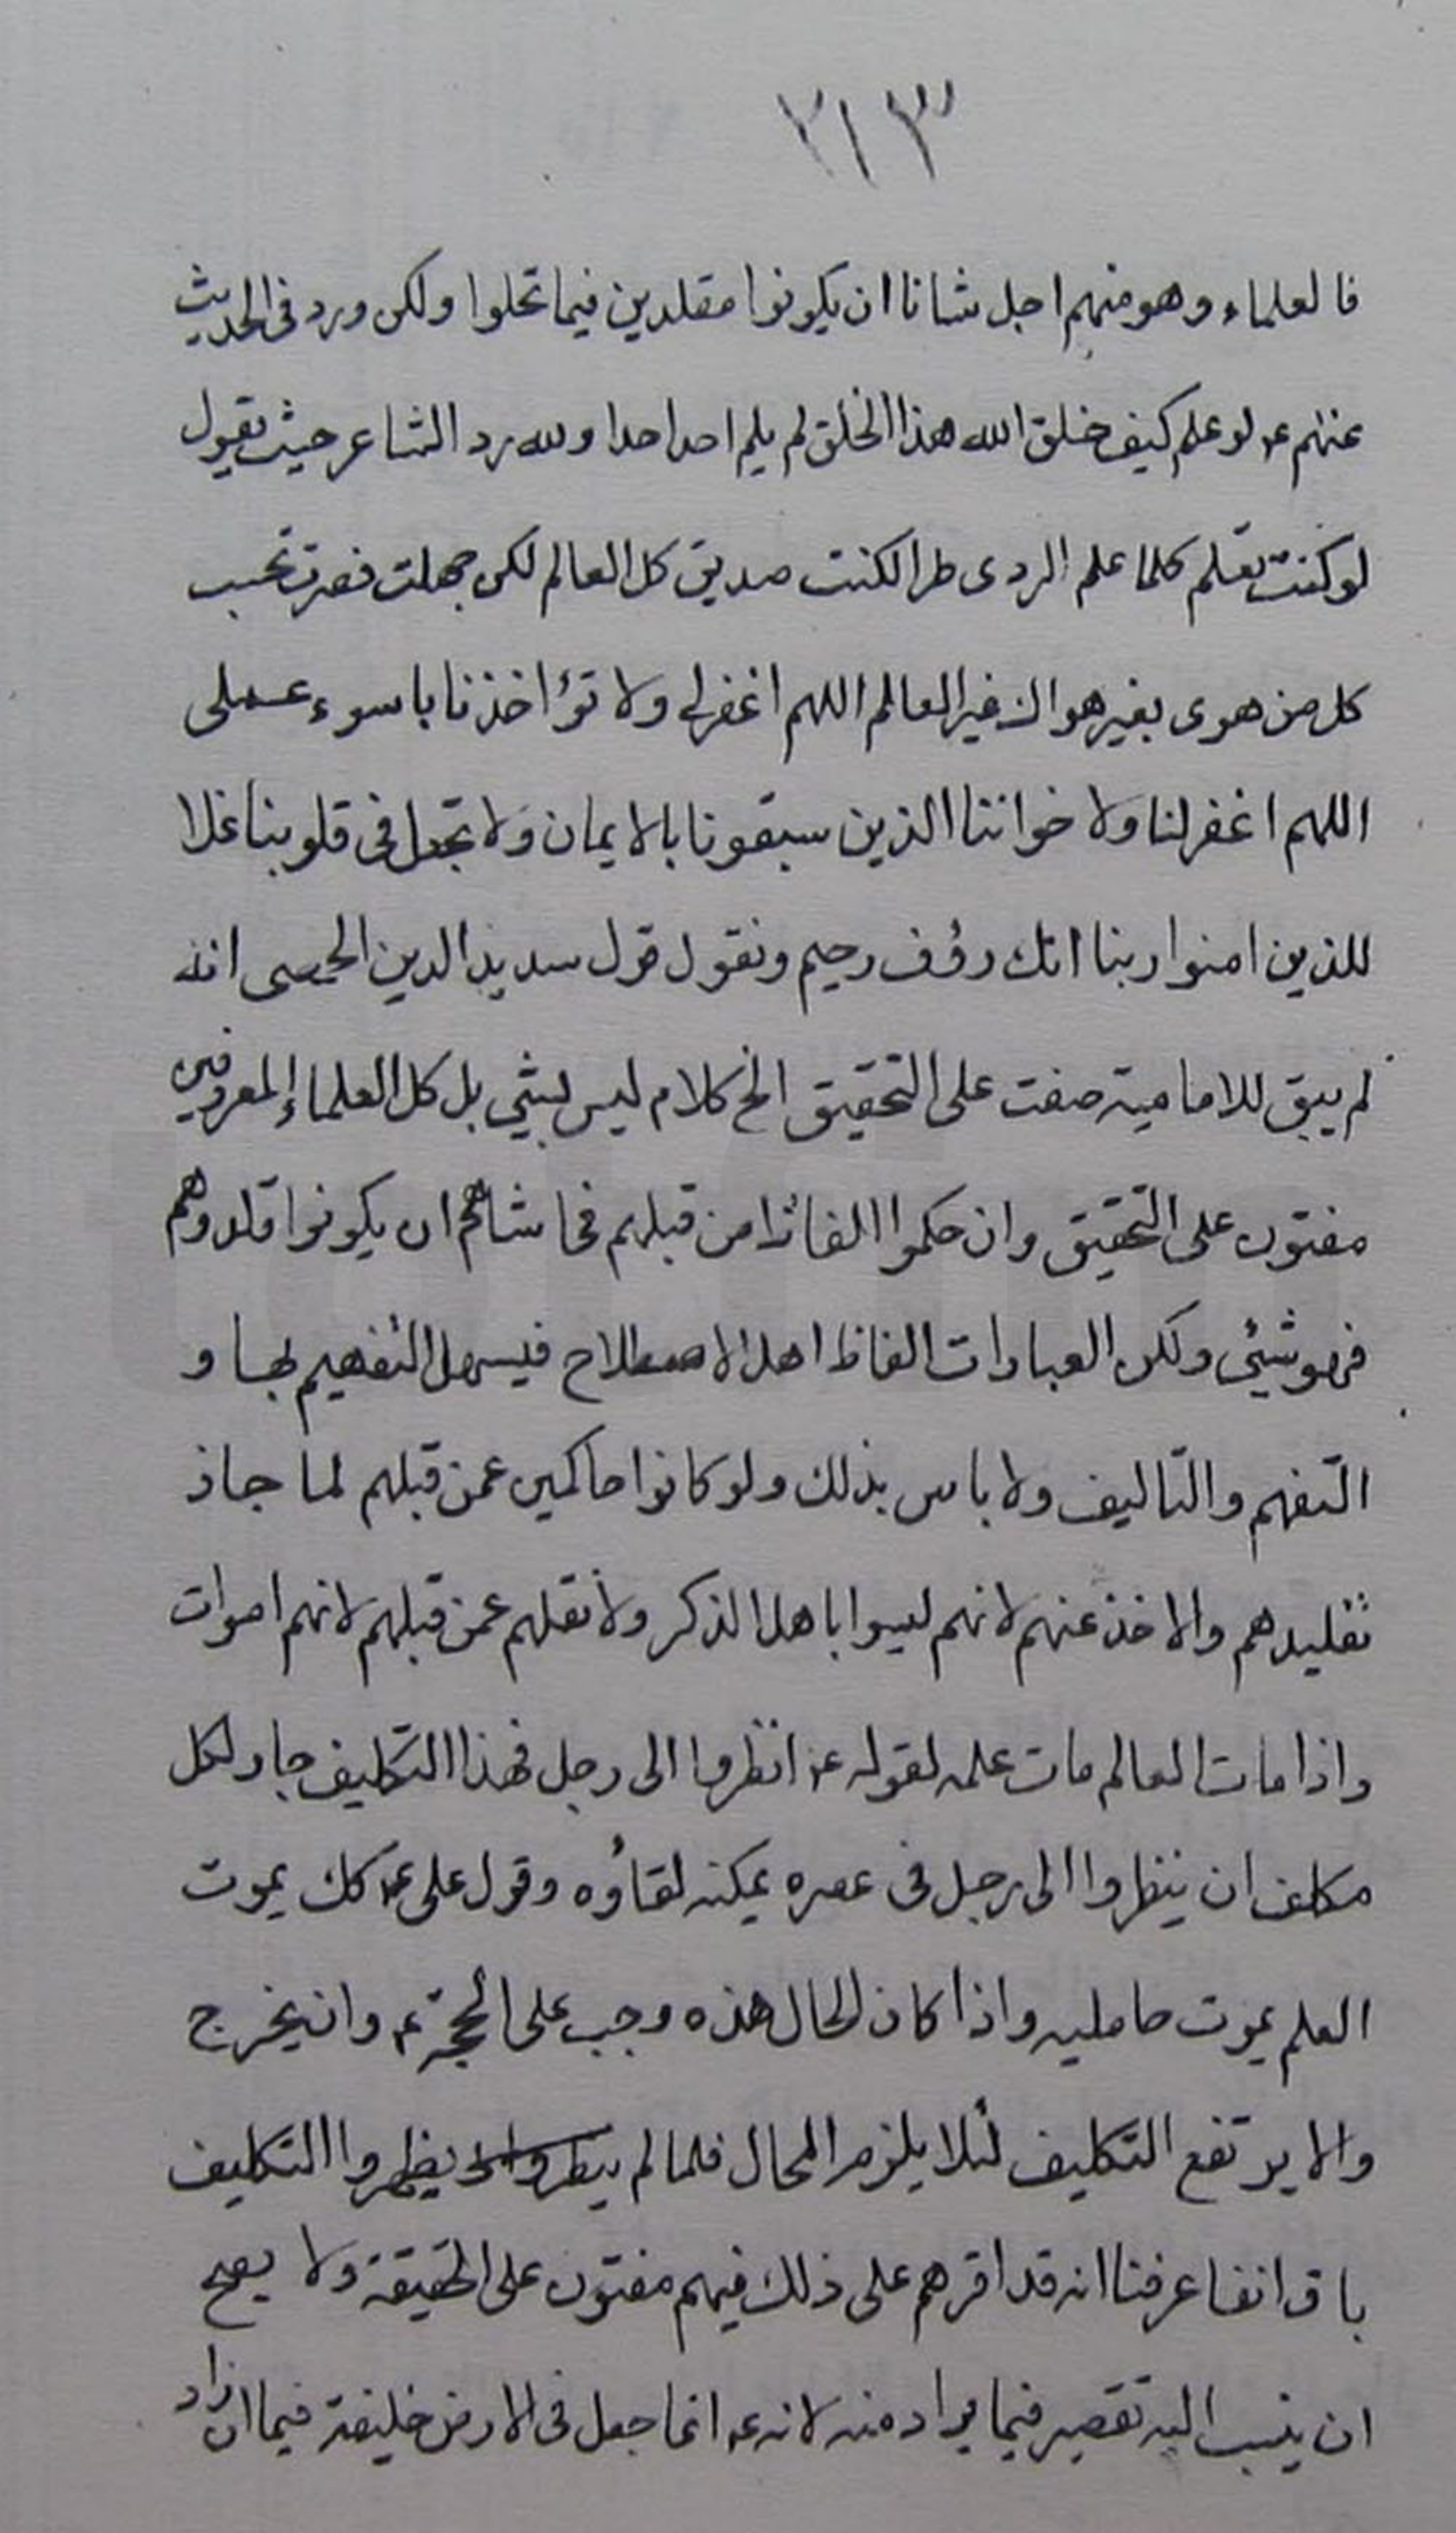 ٢١٣
فالعلماء وهو منهم اجل شانا ان يكونوا مقلدين فيما تحلوا ولكن ورد فى الحديث
عنهم عه لو علم كيف خلق الله هذا الخلق لم يلم احد احدا ولله در الشاعر حيث يقول
لو كنت تعلم كلما علم الردى طرا لكنت صديق كل العالم لكن جهلت فصرت تحسب
كل من هوى بغير هواك غير العالم اللهم اغفر لى ولا تؤاخذنا باسوء عملى
اللهم اغفر لنا ولاخواننا الذين سبقونا بالايمان ولا تجعل فى قلوبنا غلا
للذين امنوا ربنا انك رؤف رحيم ونقول قول سديد الدين الحمصى انه
لم يبق للامامية مفت على التحقيق الخ كلام ليس بشئ بل كل العلماء المعروفين
مفتون على التحقيق وان حكموا الفاظ من قبلهم فحاشاهم ان يكونوا قلدوهم
فى شئ ولكن العبارات الفاظ اهل الاصطلاح فيسهل التفهيم بها و
التفهم والتاليف ولا باس بذلك ولو كانوا حاكين عمن قبلهم لما جاز
تقليدهم والاخذ عنهم لانهم ليسوا باهل الذكر ولا نقلهم عمن قبلهم لانهم اموات
واذا مات العالم مات علمه لقوله عه انظروا الى رجل فهذا التكليف جار لكل
مكلف ان ينظروا الى رجل فى عصره يمكنه لقاؤه وقول على عه كك يموت
العلم يموت حامليه واذا كان الحال هذه وجب على الحجة عه وان يخرج
والا يرتفع التكليف لئلا يلزم المحال فلما لم يظهروا التكليف
باق انفا عرفنا انه قد اقرهم على ذلك فهم مفتون على الحقيقة ولا يصح
ان ينسب اليه تقصير فيما يراد منه لانه عه انما جعل فى الارض خليفة فيما ان زاد